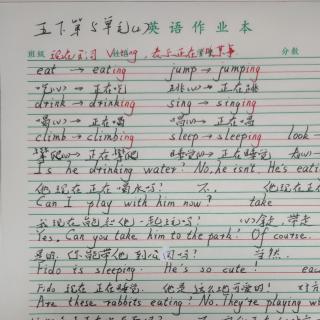 五下第5单元(2) 英语作业本
班级 现在分词 V+ing, 表示正在做某事 分数
eat → eating jump → jumping
吃(v) → 正在吃 跳(v) → 正在跳
drink → drinking sing → singing
喝(v) → 正在喝 唱(v) → 正在唱
climb → climbing sleep → sleeping look →
攀爬(v) → 正在攀爬 睡觉(v) → 正在睡觉 看(v) →
Is he drinking water? No, he isn't. He's eati
他现在正在喝水吗? 不, 他现在正在
Can I play with him now? take
我现在能和他一起玩吗? (v)拿走, 带走
Yes, Can you take him to the park? Of course.
是的, 你能带他到公园吗? 当然
Fido is sleeping. He's so cute! eac
Fido 现在正在睡觉. 他是这么地可爱的!
Are these rabbits eating? No. They're playing wi